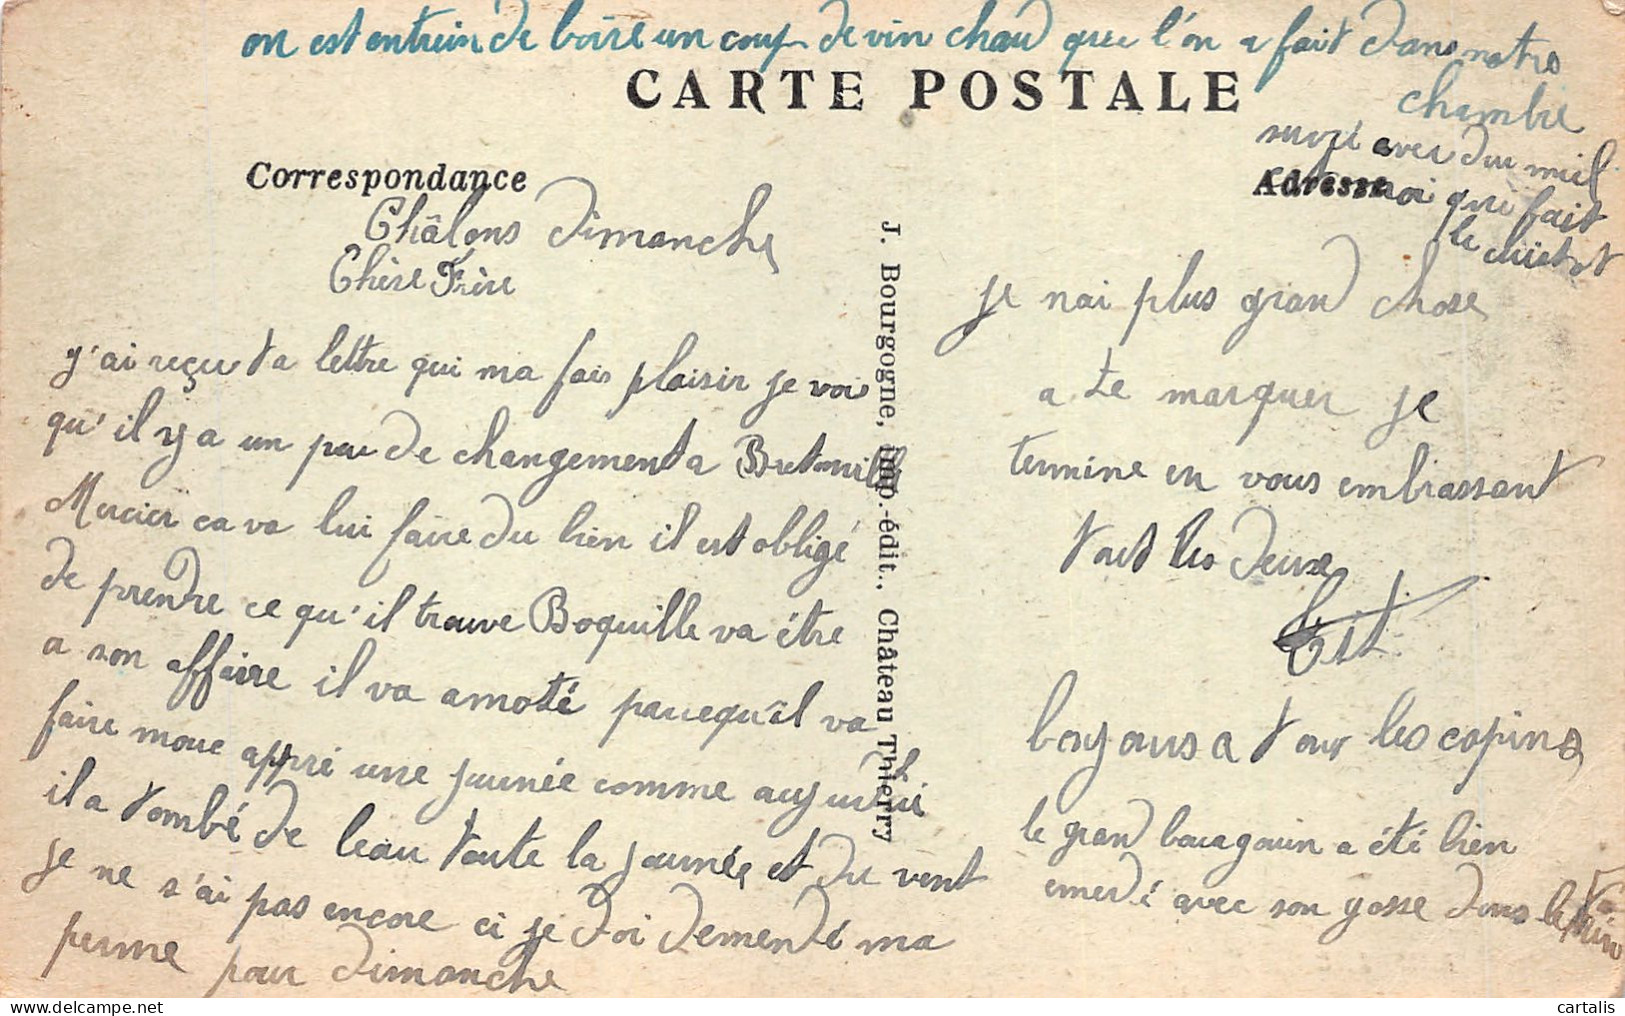 on est entrein de boire un coup de vin chaud que l'on a fait dans notre
chambre
sucré avec du miel
moi qui fait
le cuistot
CARTE POSTALE
Correspondance
Adresse
Châlons Dimanche
Chère Frère
j'ai reçu ta lettre qui ma fais plaisir je voi
qu'il y a un peu de changement a
Mercier ca va lui faire du bien il est obligé
de prendre ce qu'il trouve Boquille va être
a son affaire il va a moté parcequ'il va
faire moue apprè une journée comme aujurdhui
il a tombé de leau toute la journée et du vent
je ne s'ai pas encore ci je doi demendé ma
perme pour dimanche
J. Bourgogne, imp.-édit., Château Thierry
je nai plus grand chose
a te marquer je
termine en vous embrassant
tout les deux
bonjours a tous les copins
le grand bourgouin a été bien
emerdé avec son gosse dans le train
cartalis